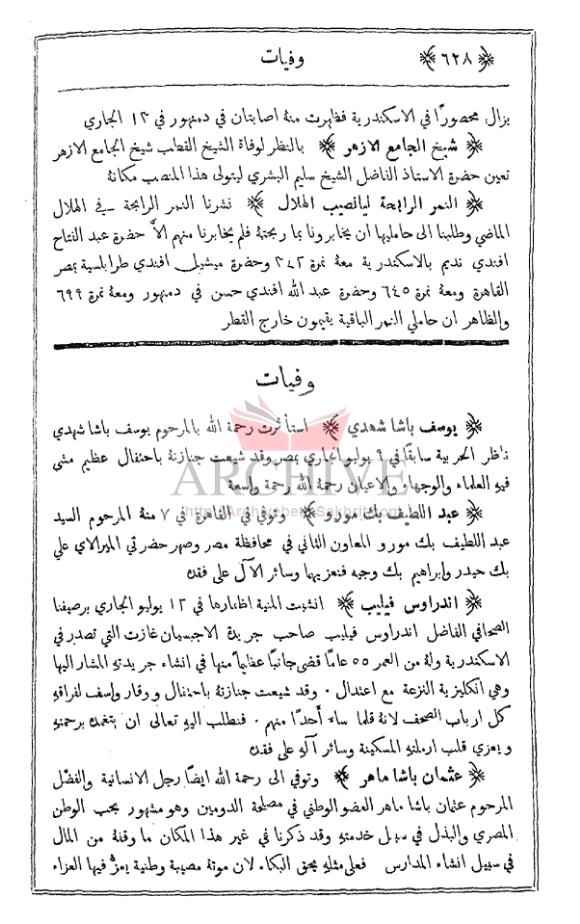 ﴿٦٢٨﴾ وفيات
يزال محصورًا في الاسكندرية فظهرت منهُ اصابتان في دمنهور في ١٢ الجاري
﴿ شيخ الجامع الازهر ﴾ بالنظر لوفاة الشيخ القطب شيخ الجامع الازهر
تعين حضرة الاستاذ الفاضل الشيخ سليم البشري ليتولى هذا المنصب مكانهُ
﴿ النمر الرابحة ليانصيب الهلال ﴾ نشرنا النمر الرابحة في الهلال
الماضي وطلبنا الى حامليها ان يخابرونا بما ربحتهُ فلم يخابرنا منهم الاَّ حضرة عبد الفتاح
افندي نديم بالاسكندرية معهُ نمرة ٢٨٢ وحضرة ميشيل افندي طرابلسية بمصر
القاهرة ومعهُ نمرة ٦٤٥ وحضرة عبد الله افندي حسن في دمنهور ومعهُ نمرة ٦٩٩
والظاهر ان حاملي النمر الباقية يقيمون خارج القطر
وفيات
﴿ يوسف باشا شهدي ﴾ استأثرت رحمة الله بالمرحوم يوسف باشا شهدي
ناظر الحربية سابقًا في ٩ يوليو الجاري بمصر وقد شيعت جنازتهُ باحتفال عظيم مشى
فيهِ العلماء والوجهاء والاعيان رحمهُ الله رحمة واسعة
﴿ عبد اللطيف بك مورو ﴾ وتوفي في القاهرة في ٧ منهُ المرحوم السيد
عبد اللطيف بك مورو المعاون الثاني في محافظة مصر وصهر حضرتي الميرالاي علي
بك حيدر وابراهيم بك وجيه فنعزيهما وسائر الآل على فقدهِ
﴿ اندراوس فيليب ﴾ انشبت المنية اظفارها في ١٢ يوليو الجاري برصيفنا
الصحافي الفاضل اندراوس فيليب صاحب جريدة الاجبسيان غازت التي تصدر في
الاسكندرية ولهُ من العمر ٥٥ عامًا قضى جانبًا عظيمًا منها في انشاء جريدتهِ المشار اليها
وهي انكليزية النزعة مع اعتدال . وقد شيعت جنازتهُ باحتفال ووقار واسف لفراقهِ
كل ارباب الصحف لانهُ قلما ساء أحدًا منهم . فنطلب اليهِ تعالى ان يتغمدهُ برحمتهِ
ويعزي قلب ارملتهِ المسكينة وسائر آلهِ على فقدهِ
﴿ عثمان باشا ماهر ﴾ وتوفي الى رحمة الله ايضًا رجل الانسانية والفضل
المرحوم عثمان باشا ماهر العضو الوطني في مصلحة الدومين وهو مشهور بحب الوطن
المصري والبذل في سبيل خدمتهِ وقد ذكرنا في غير هذا المكان ما وقفهُ من المال
في سبيل انشاء المدارس فعلى مثلهِ يحق البكاء لان موتهُ مصيبة وطنية يعزُّ فيها العزاء
ARCHIVE